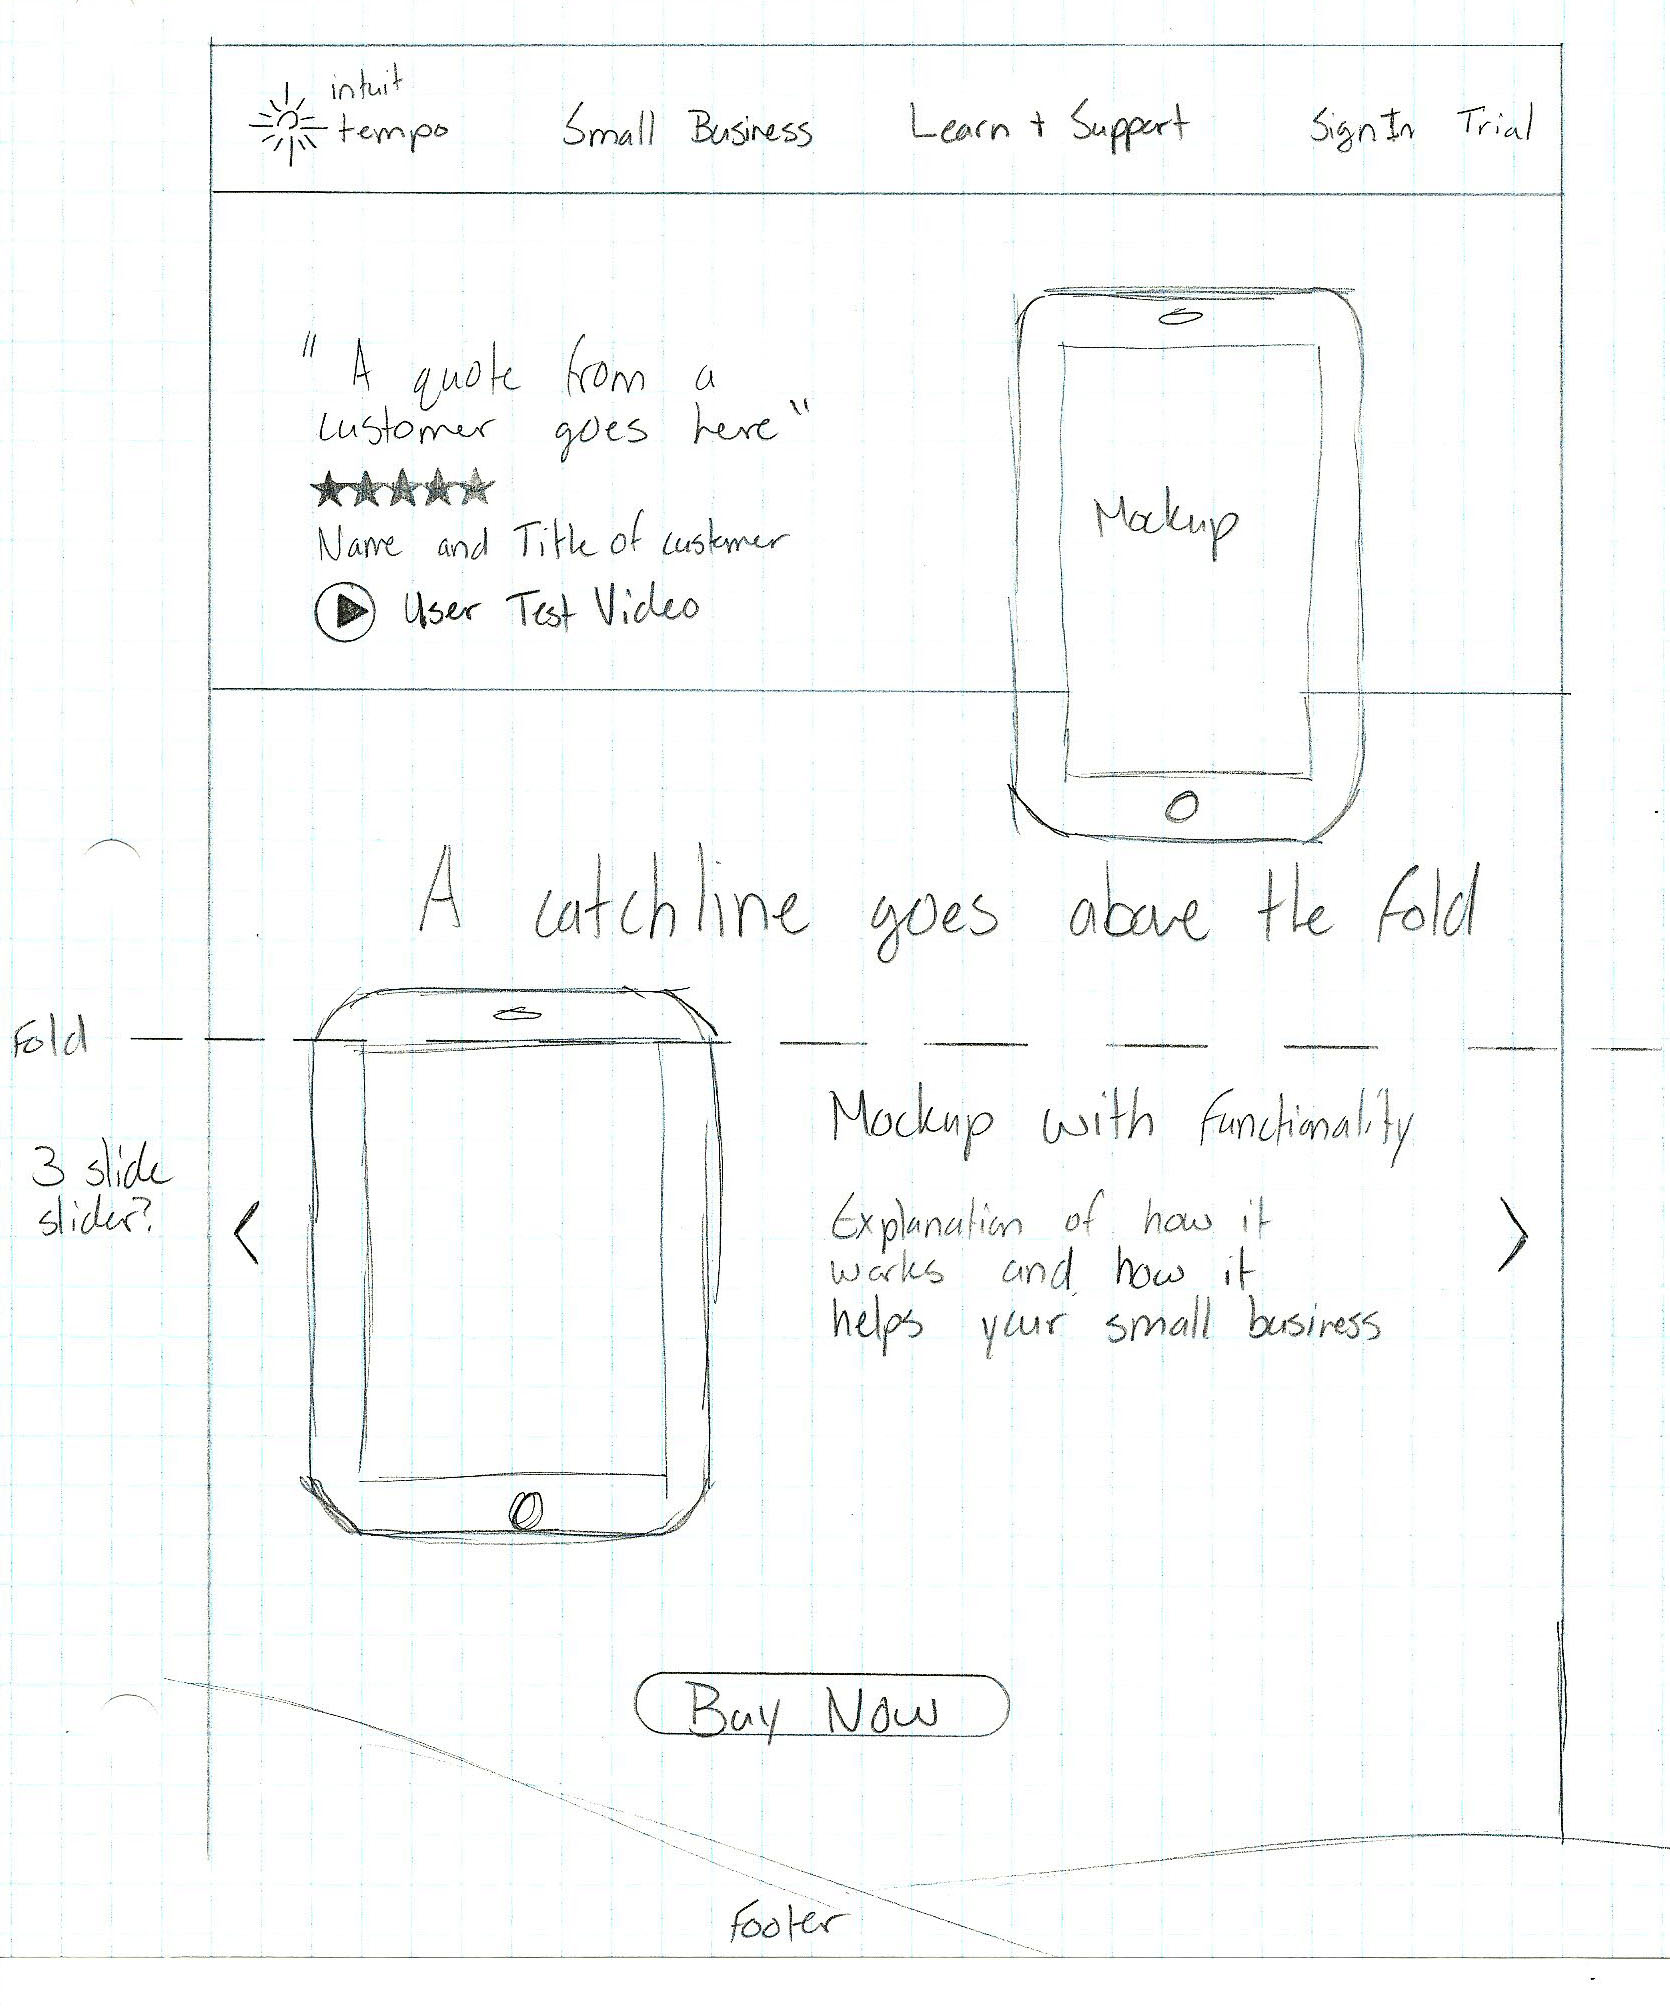 intuit
tempo
Small Business
Learn + Support
Sign In
Trial
" A quote from a
customer goes here "
Name and Title of customer
User Test Video
Mockup
A catchline goes above the fold
Fold
3 slide
slider?
<
Mockup with functionality
Explanation of how it
works and how it
helps your small business
>
Buy Now
Footer